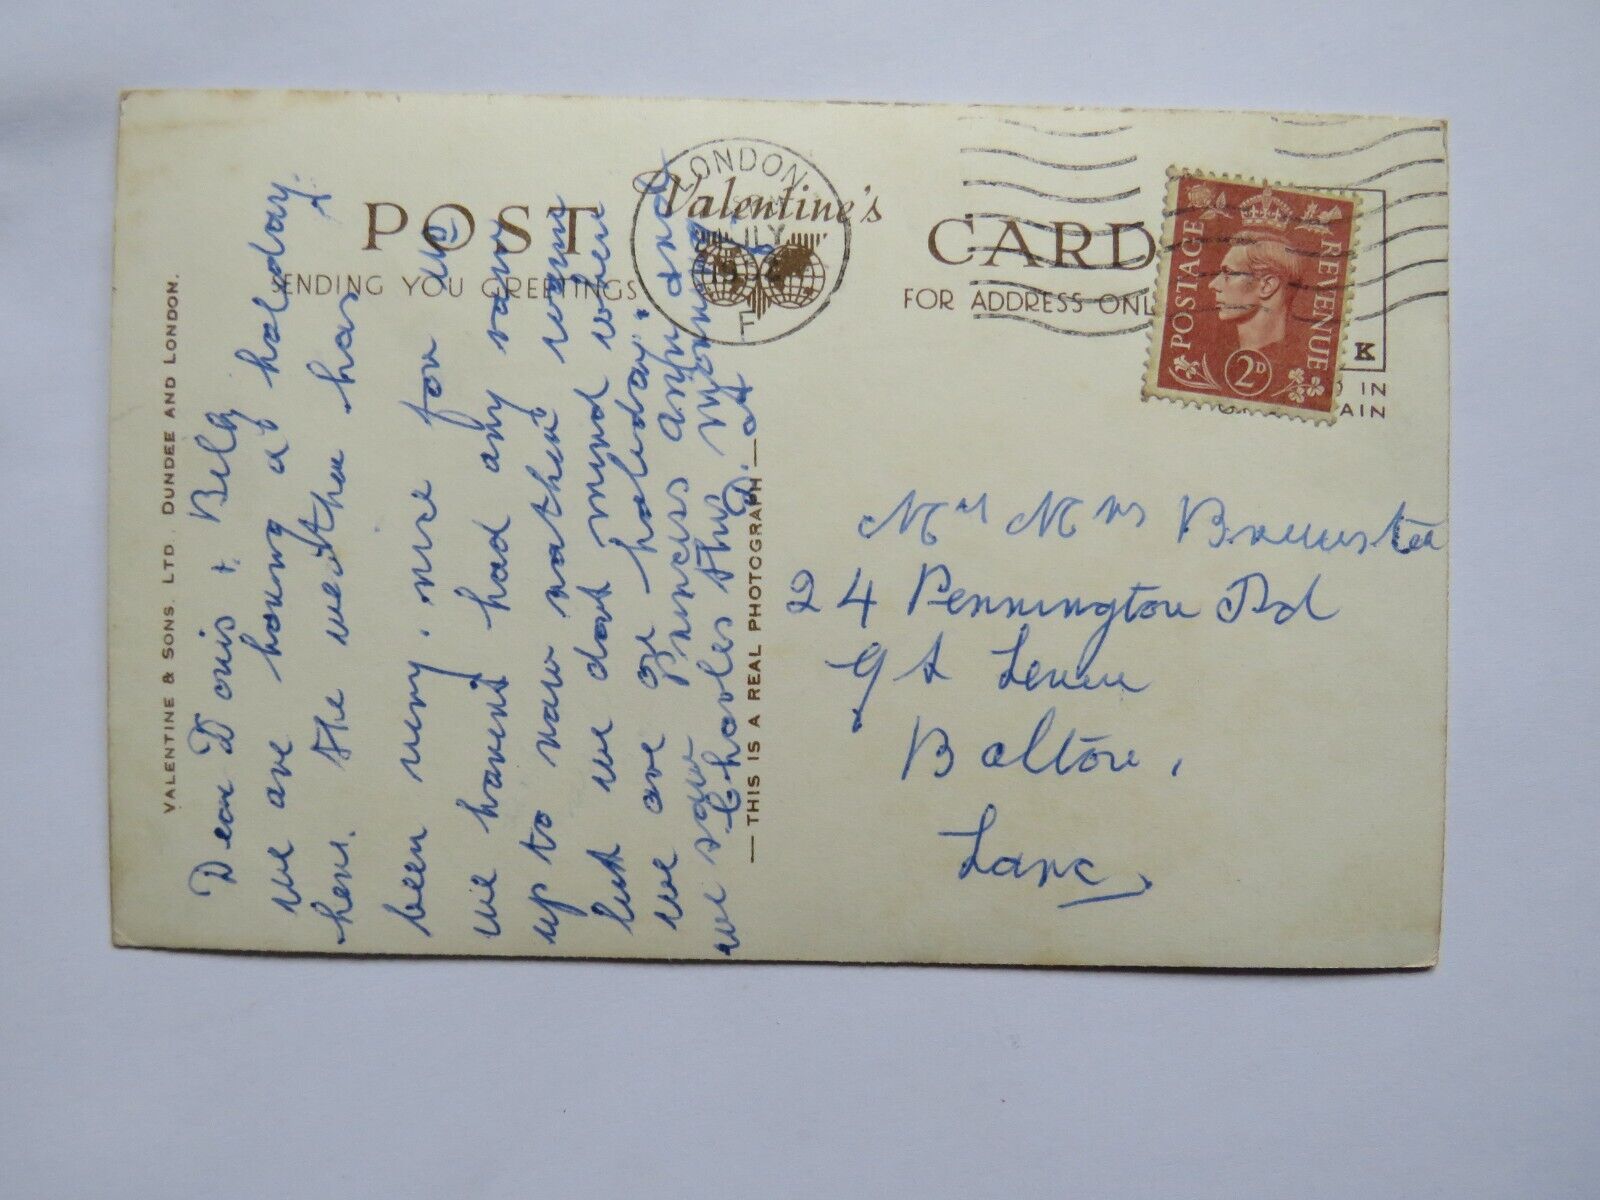 POST Valentine's CARD
SENDING YOU GREETINGS
FOR ADDRESS ONL
LONDON
JLY
POSTAGE REVENUE
2D
K
D IN
AIN
VALENTINE & SONS, LTD., DUNDEE AND LONDON.
Dear Doris + Billy
we are having a holeday
here. the weather has
been very. nice for us
we havent had any rain
up to now rather warm
but we dont mind when
we are on holiday.
we saw Princess Anne and
Charles this morning.
THIS IS A REAL PHOTOGRAPH
Mr Mrs Brewster
24 Pennington Rd
Gt Lever
Bolton,
Lanc